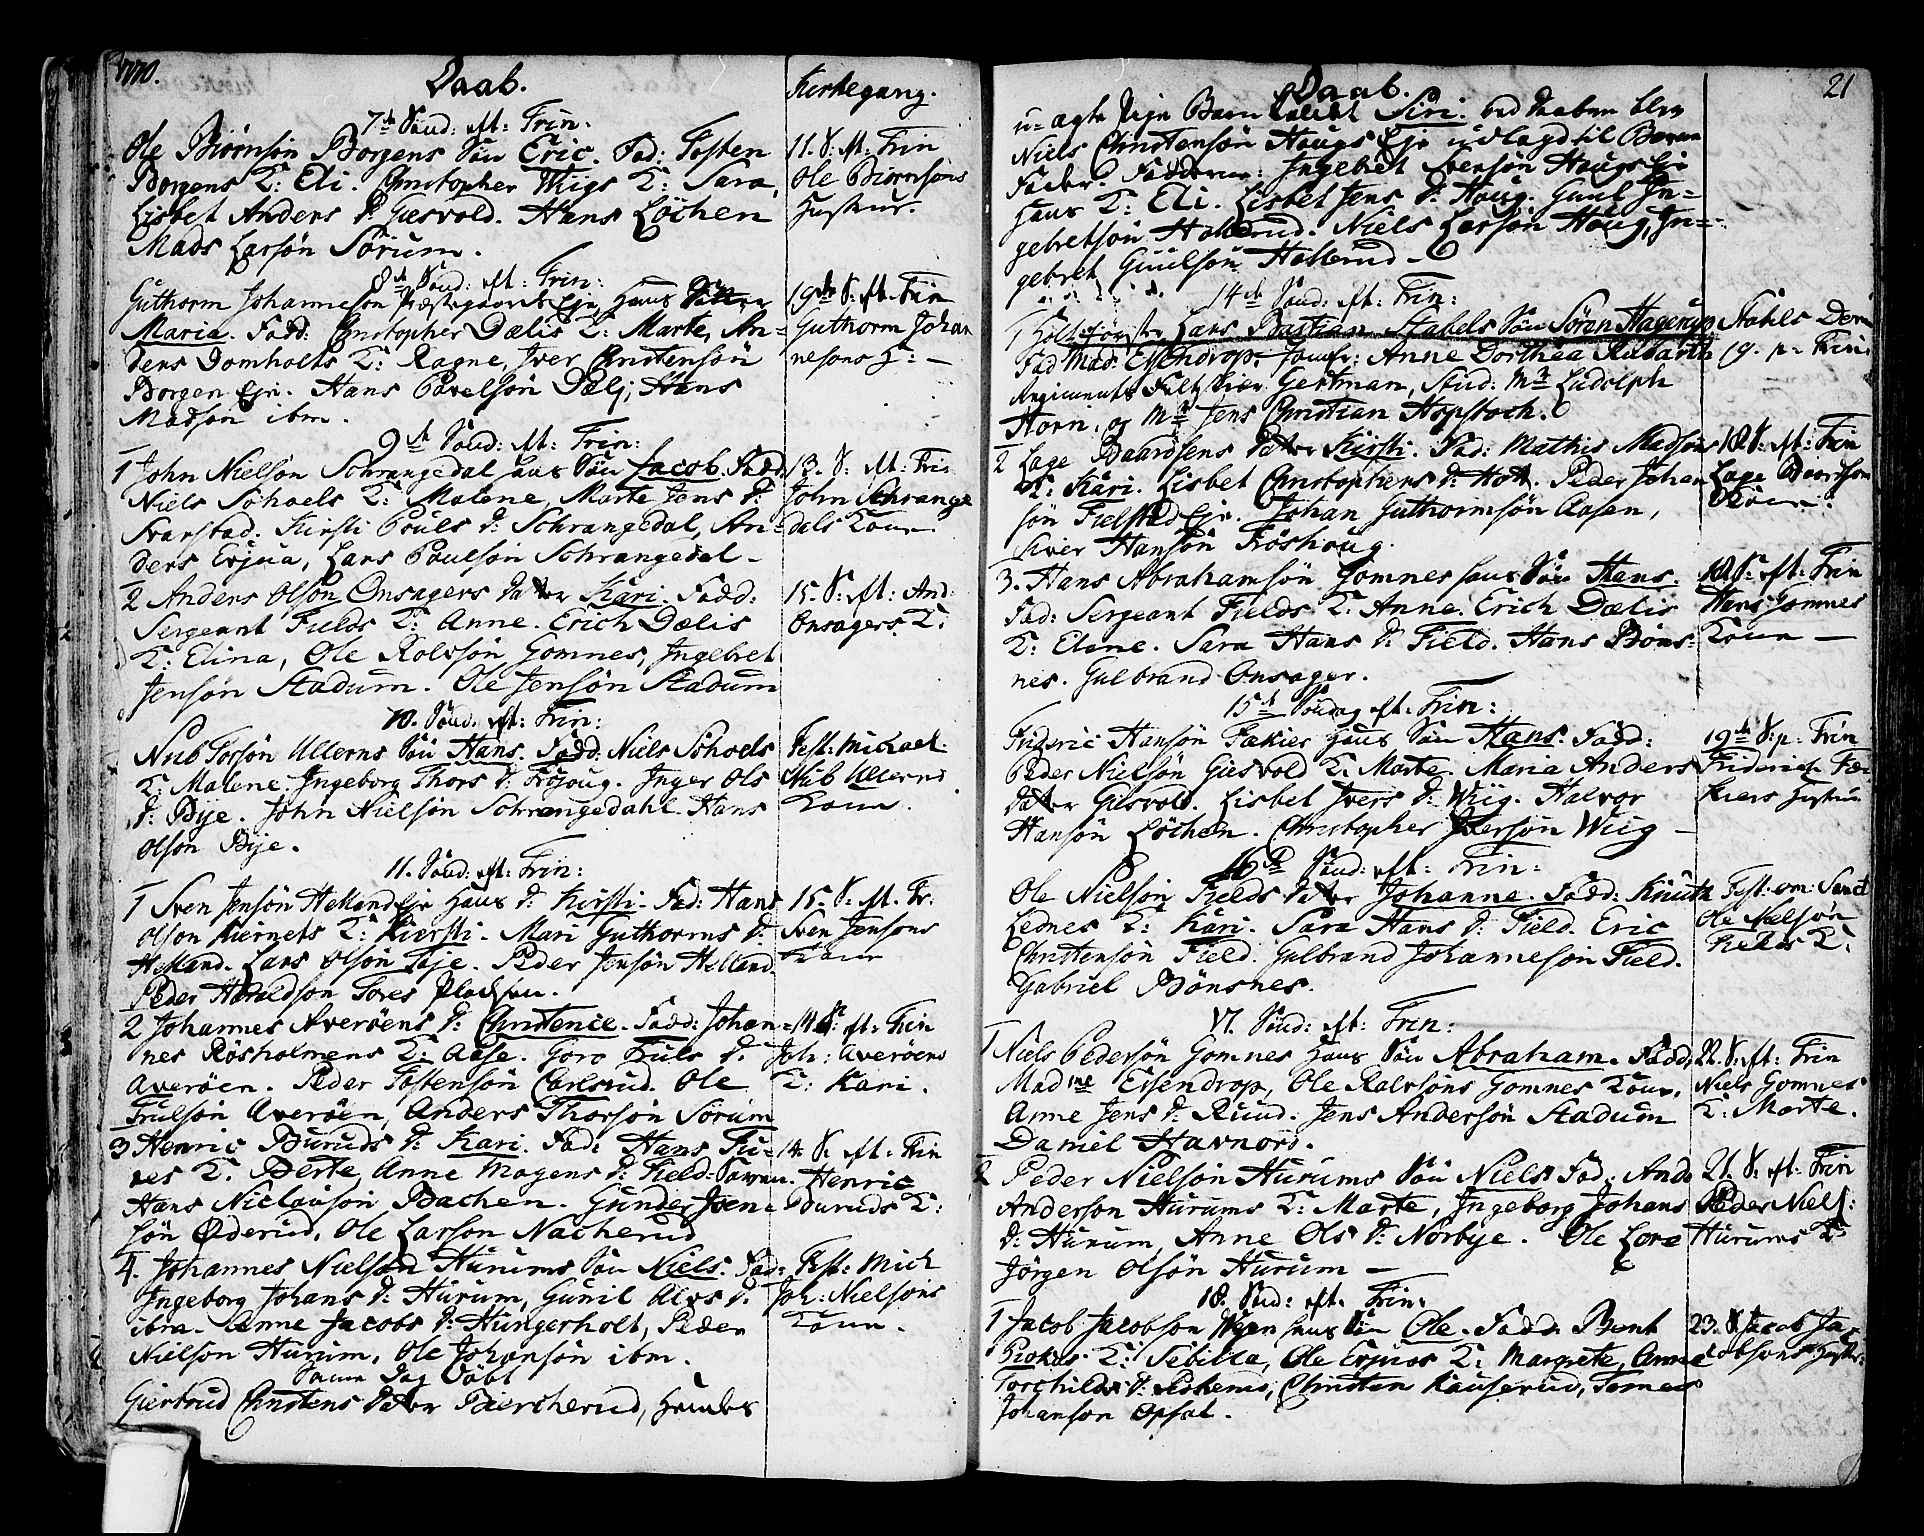 1770.
Daab.
Kirkegang.
7de Sönd: eft: Trin:
Ole Biörnsön Borgens Sön Eric. Fad: Tosten
Borgens K: Eli. Christopher Wiigs K: Sara,
Lisbet Anders D: Giesvold. Hans Löchen
Mads Larsön Sörum.
11. S. eft: Trin
Ole Biörnsöns
Hustrue.
8de Sönd: eft: Trin:
Guthorm Johannesön Præstegaards Eje, Hans Datter
Maria. Fadd: Christopher Dælis K: Marte, An=
ders Domholts K: Ragne, Iver Christensön
Borgen Eje. Hans Povelsön Dælj, Hans
Madsön ibm.
19de S. eft: Trin
Guthorm Johan
nesöns H: —
9de Sönd: eft: Trin:
1 John Nielsön Schrangedal hans Sön Jacob. Fadd
Niels Schoels K: Malene, Marte Jens D:
Svarstad. Kirsti Pouls D: Schrangedal, An=
ders Erjua, Lars Poulsön Schrangedal —
13. S. eft: Trin
John Schrange
dals Kone
2 Anders Olsön Onsagers Datter Kari. Fadd:
Sergeant Fields K: Anne. Erich Dælis
K: Elina, Ole Rolvsön Gomnes, Ingebret
Jensön Stadum. Ole Jensön Stadum
15. S. eft: And:
Onsagers K:
10. Sönd. eft: Trin:
Nub Torsön Ullerns Sön Hans. Fadd: Niels Schoels
K: Malene. Ingeborg Thors D: Fröjoug. Inger Ols
D: Bye. John Nielsön Schrangedahl. Hans
Olsön Bye.
Fest: Michael:
Nub Ullerns
Kone.
11. Sönd: eft: Trin:
1 Sven Jensön Helland Eje Hans D: Kirsti. Fad: Hans
Olsön Kiernets K: Kiersti. Mari Guthorms D:
Helland. Lars Olsön Teje. Peder Jensön Helland
Peder Haraldsön Tores Pladsen.
15. S. eft. Tr:
Sven Jensöns
Kone
2 Johannes Averöens D: Christence. Fadd: Johan=
nes Rösholmens K: Aase. Goro Truls D.
Averöen. Peder Tostensön Carlsrud. Ole
Trulsön Averöen, Anders Thorsön Sörum
14. S. eft: Trin
Joh: Averöens
K: Kari.
3 Henric Buruds D: Kari. Fad: Hans Tu=
res K. Berte, Anne Mogens D: Field
Hans Niclausön Bachen. Gunder Iven=
sön Öderud, Ole Larsön Nacherud
14. S. eft: Trin
Henric
Buruds K:
4. Johannes Nielsön Hurums Sön Niels. Fad:
Ingeborg Johans D: Hurum, Gunil Alvs D.
ibm. Anne Jacobs D: Hungerholt, Peder
Nielsön Hurum, Ole Johansön ibm.
Fest: Mich
Joh: Nielsöns
Kone.
Samme Dag Döbt
Giertrud Christens Datter Biercherud, hendes
21
Daab.
u-ægte Pige Barn kaldet Siri. ved Daaben blev
Niels Christensön Hougs Eje udlagd til Barne
Fader. Fadderne: Ingebret Svensön Hougs Eje
Hans K: Eli. Lisbet Jens D: Houg. Guul In=
gebretsön Hollerud. Niels Larsön Houg, In=
gebret Guulsön Hollerud —
14de Sönd: eft: Trin:
1 Holtzförster Hans Bastian Stabels Sön Sören Hagerup
Fad Mad: Eysendrop. Jomfr: Anne Dorthea Rubarth
Regiments Felt Skier Gertman, Stud: Mr Ludolph
Horn, og Mr Jens Christian Hopstoch.
Stabels
19. p. Trin:
2 Lage Baardsens Datter Kirsti. Fad: Mathis Madsöns
K: Kari. Lisbet Christophers D: Hott. Peder Johan
sön Fielstad Eje. Johan Guthormsön Aasen,
Siver Hansön Fröshoug.
18. S. eft: Trin
Lage Baardsön
Kone:
3. Hans Abrahamsön Gomnes hans Sön Hans.
Fad: Sergeant Fields K: Anne. Erich Dælis
K: Elene. Sara Hans D: Field. Hans Böns=
nes. Gulbrand Onsager.
18. S. eft: Trin
Hans Gomnes
Kone —
15de Söndag eft: Trin:
Frideric Hansön Fækier Hans Sön Hans. Fadd:
Peder Nielsön Giesvold K: Marte. Maria Anders
Datter Gisvold. Lisbet Ivers D: Wiig. Halvor
Hansön Löchen. Christopher Iversön Wiig —
19de S: p: Trin
Friderich Fæ
kiers Hustrue
16de Sönd: eft: Trin:
Ole Nielsön Fields Datter Johanne. Fadd: Knuth
Lednes K: Kari. Sara Hans D: Field. Eric
Christensön Field. Gulbrand Johannesön Field.
Gabriel Bönsnes.
Fest: om: Sanct
Ole Nielsön
Fields K:
17. Sönd: eft: Trin:
1 Niels Pedersön Gomnes Hans Sön Abraham. Fadd:
Madme Eisendrop, Ole Ralvsöns Gomnes Kone,
Anne Jens D: Ruud. Jens Andersön Stadum
Daniel Stavnord.
22. S. eft: Trin
Niels Gomnes
K: Marte.
2 Peder Nielsön Hurums Sön Niels Fad: Ande
Andersön Hurums K: Marte, Ingeborg Johans
D: Hurum, Anne Ols D: Norbye. Ole Lore
Jörgen Olsön Hurum —
21. S. eft: Trin
Peder Niels:
Hurums K:
18. Sönd: eft: Trin:
1 Jacob Jacobsön hans Sön Ole. Fadd: Bent
K: Sebilla, Ole Erjuas K: Margrete, Anne
Torchilds D: Christen Kauserud, Tornes
Johansön Opsal.
23. S Jacob Ja=
cobsöns Hustr: